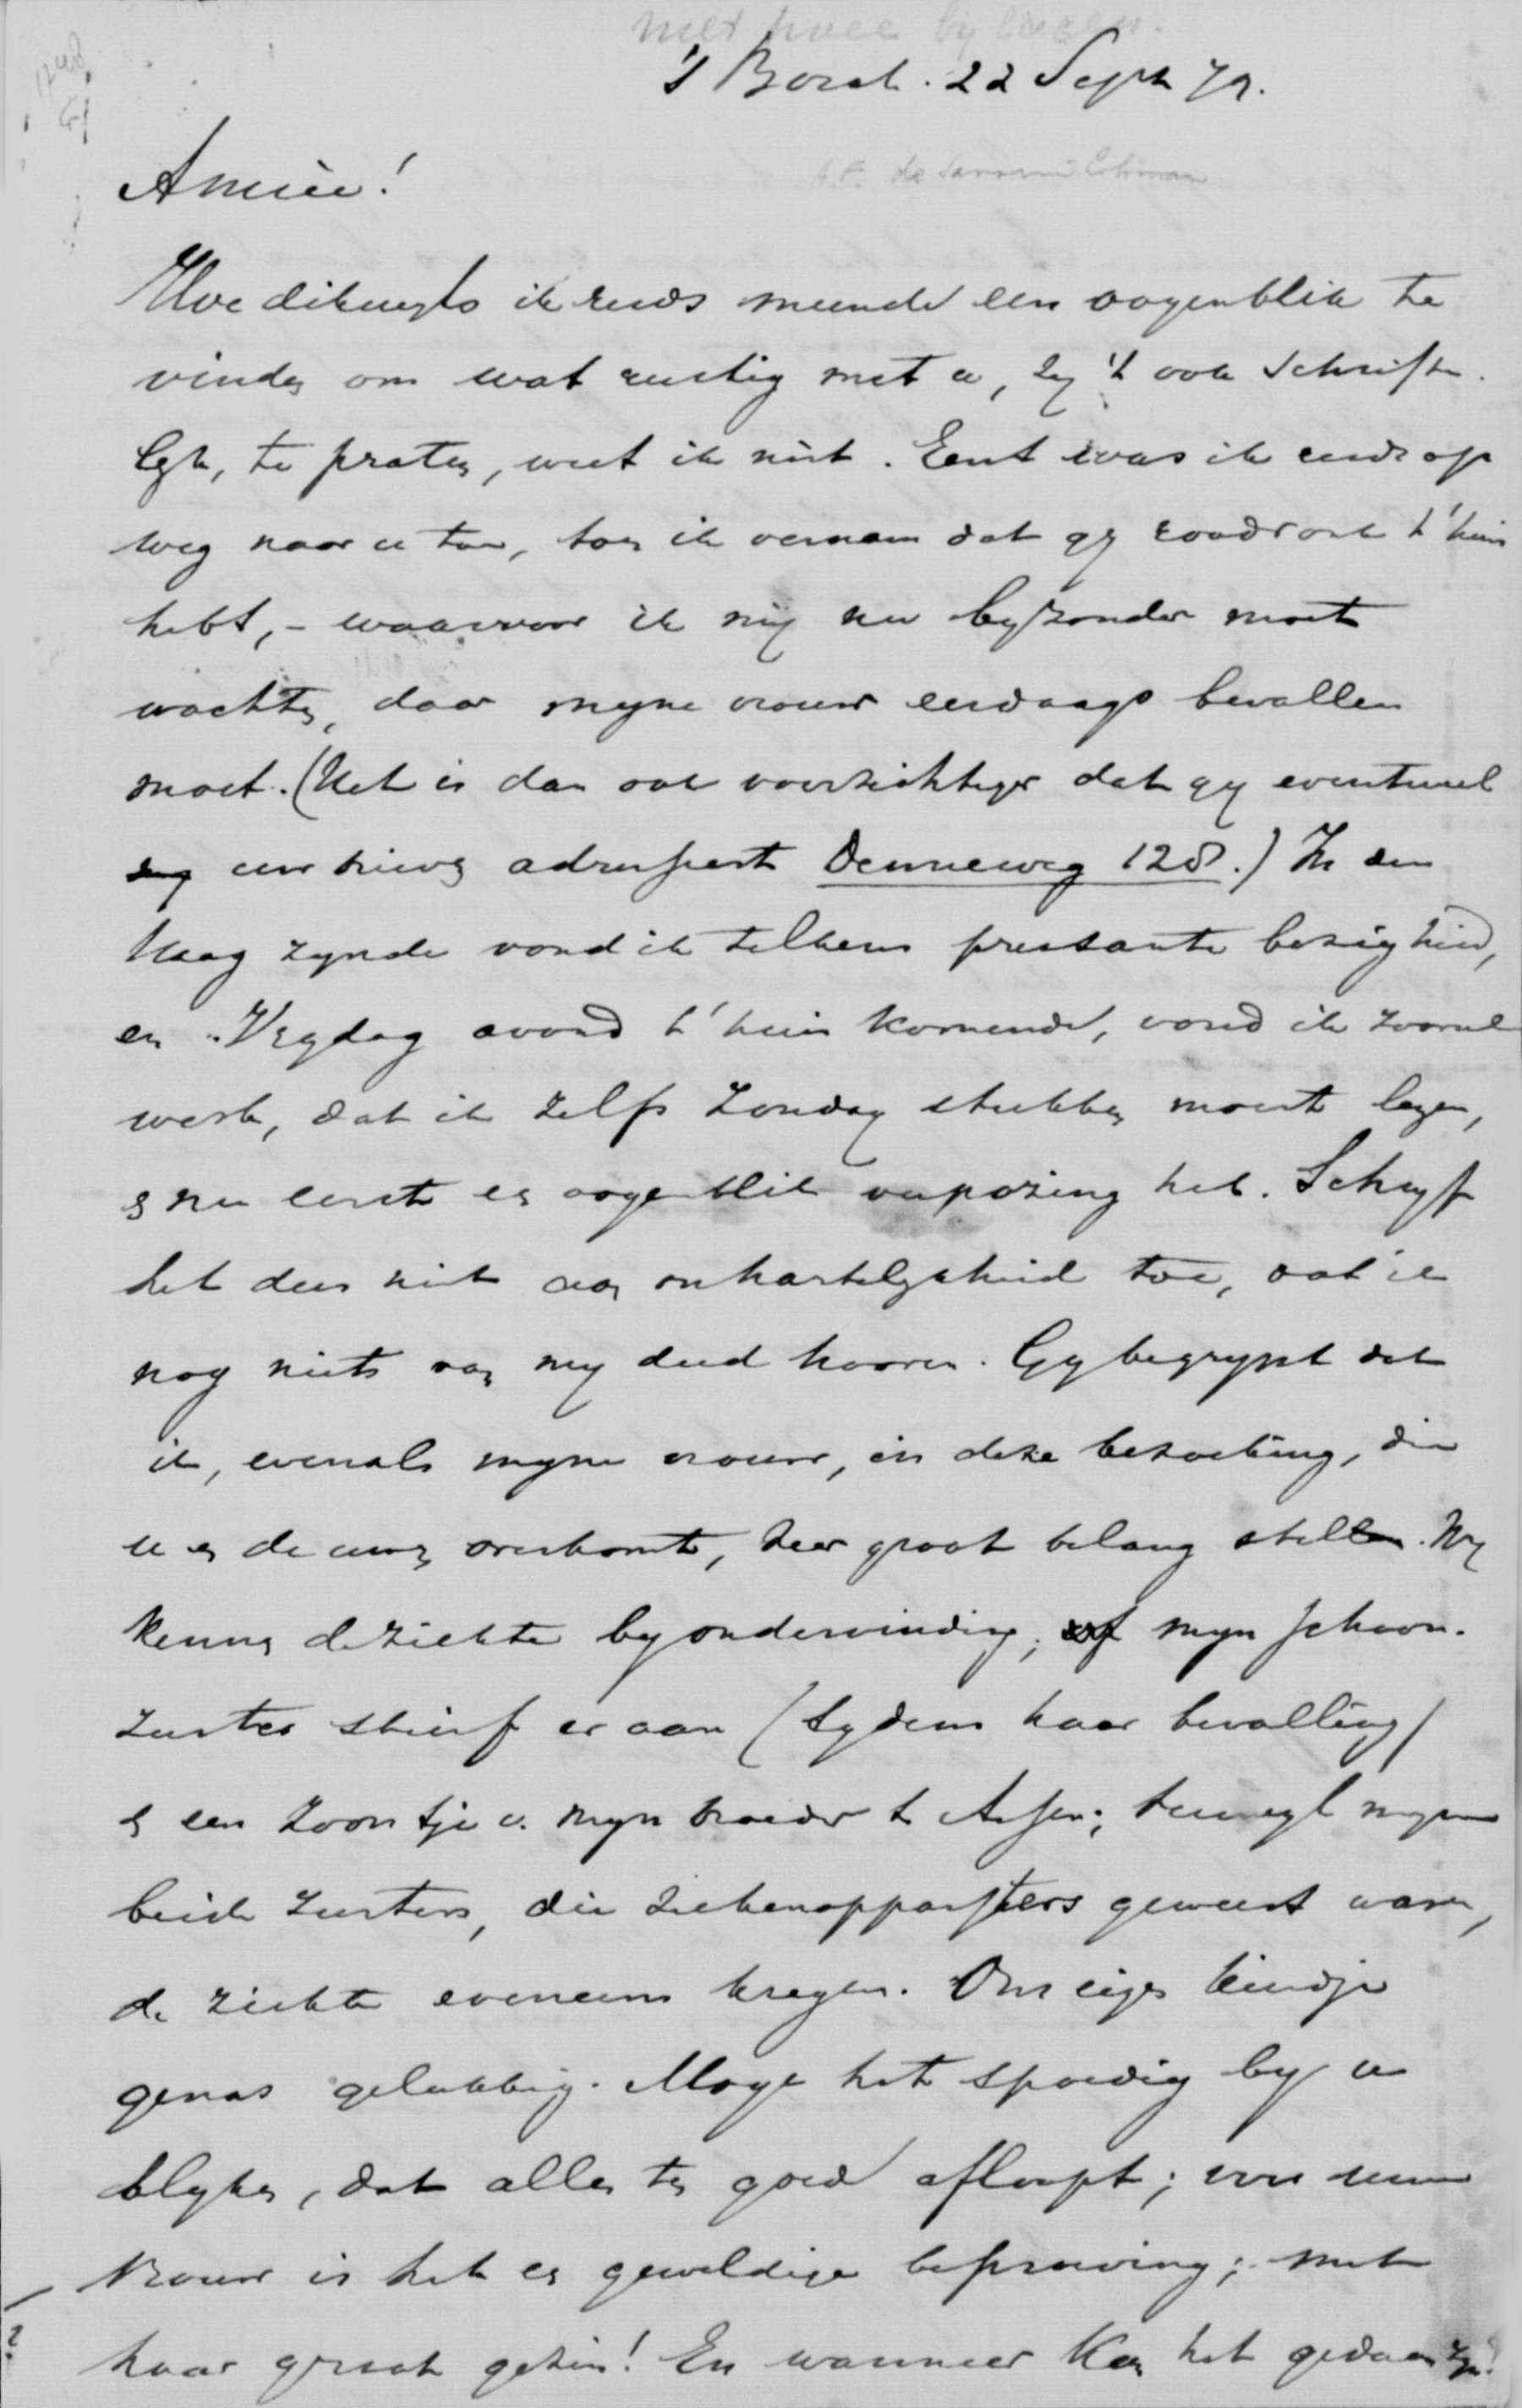 met twee bijlagen.
's Bosch. 22 Sept 79.
A.F. de Savornin Lohman
Amice!
Hoe dikwyls ik reeds meende een oogenblik te
vinden om wat rustig met u, zy 't ook schrifte-
lyk, te praten, weet ik niet. Eens was ik reeds op
weg naar u toe, toen ik vernam dat gy roodvonk t'huis
hebt, - waarvoor ik my nu byzonder moet
wachten, daar myne vrouw eerdaags bevallen
moet. (Het is dan ook voorzichtiger dat gy eventueel
uw brieven adresseert Denneweg 128.) In den
Haag zynde vond ik telkens pressante bezigheid,
en Vrydag avond t'huis komende, vond ik zooveel
werk, dat ik zelfs Zondag stukken moest lezen,
en nu eerst een oogenblik verpozing heb. Schryf
het dus niet aan onhartelykheid toe, dat ik
nog niets van my deed hooren. Gy begrypt dat
ik, evenals myne vrouw, in deze bezoeking, die
u en de uwen overkomt, zeer groot belang stellen. Wy
kennen de ziekte by ondervinding; myn schoon-
zuster stierf er aan (tydens haar bevalling)
en een zoontje v. myn broeder te Assen; terwyl myne
beide zusters, die ziekenoppassters geweest waren,
de ziekte eveneens kregen. Ons eigen kindje
genas gelukkig. Moge het spoedig by u
blyken, dat alles ten goed afloopt; voor uwe
vrouw is het een geweldige beproeving; met
haar groot gezin! En wanneer kan het gedaan zyn!